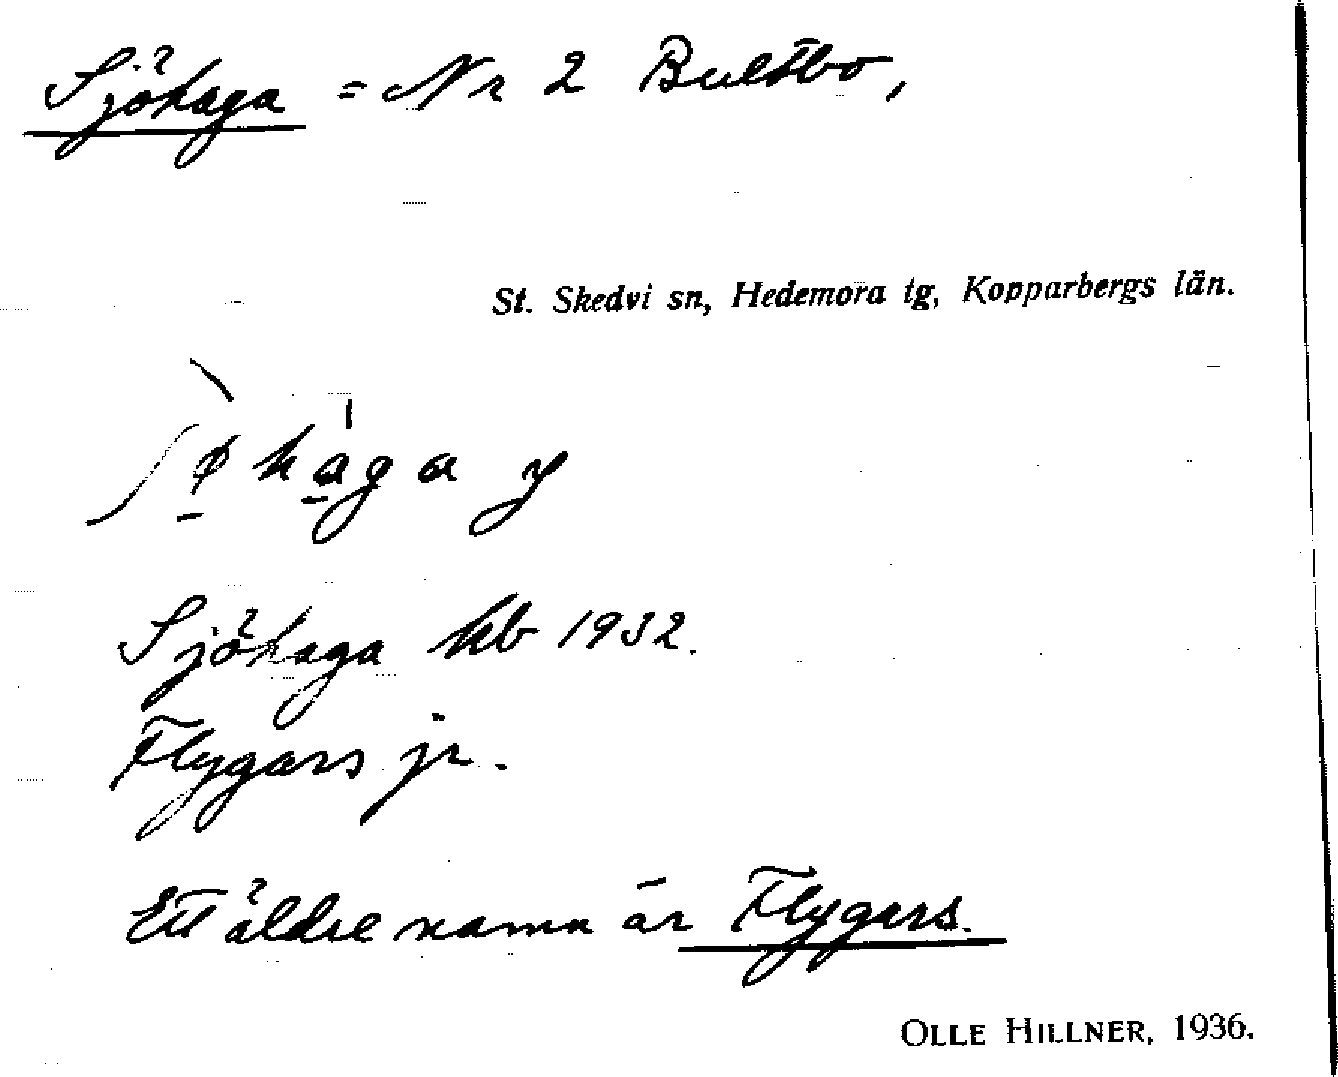 Sjöhaga = Nr 2 Bultbo,
St. Skedvi sn, Hedemora tg, Kopparbergs län.
ʃø̠ha̠ga y
Sjöhaga kb 1932.
Flygars jr.
Ett äldre namn är Flygars.
OLLE HILLNER, 1936.